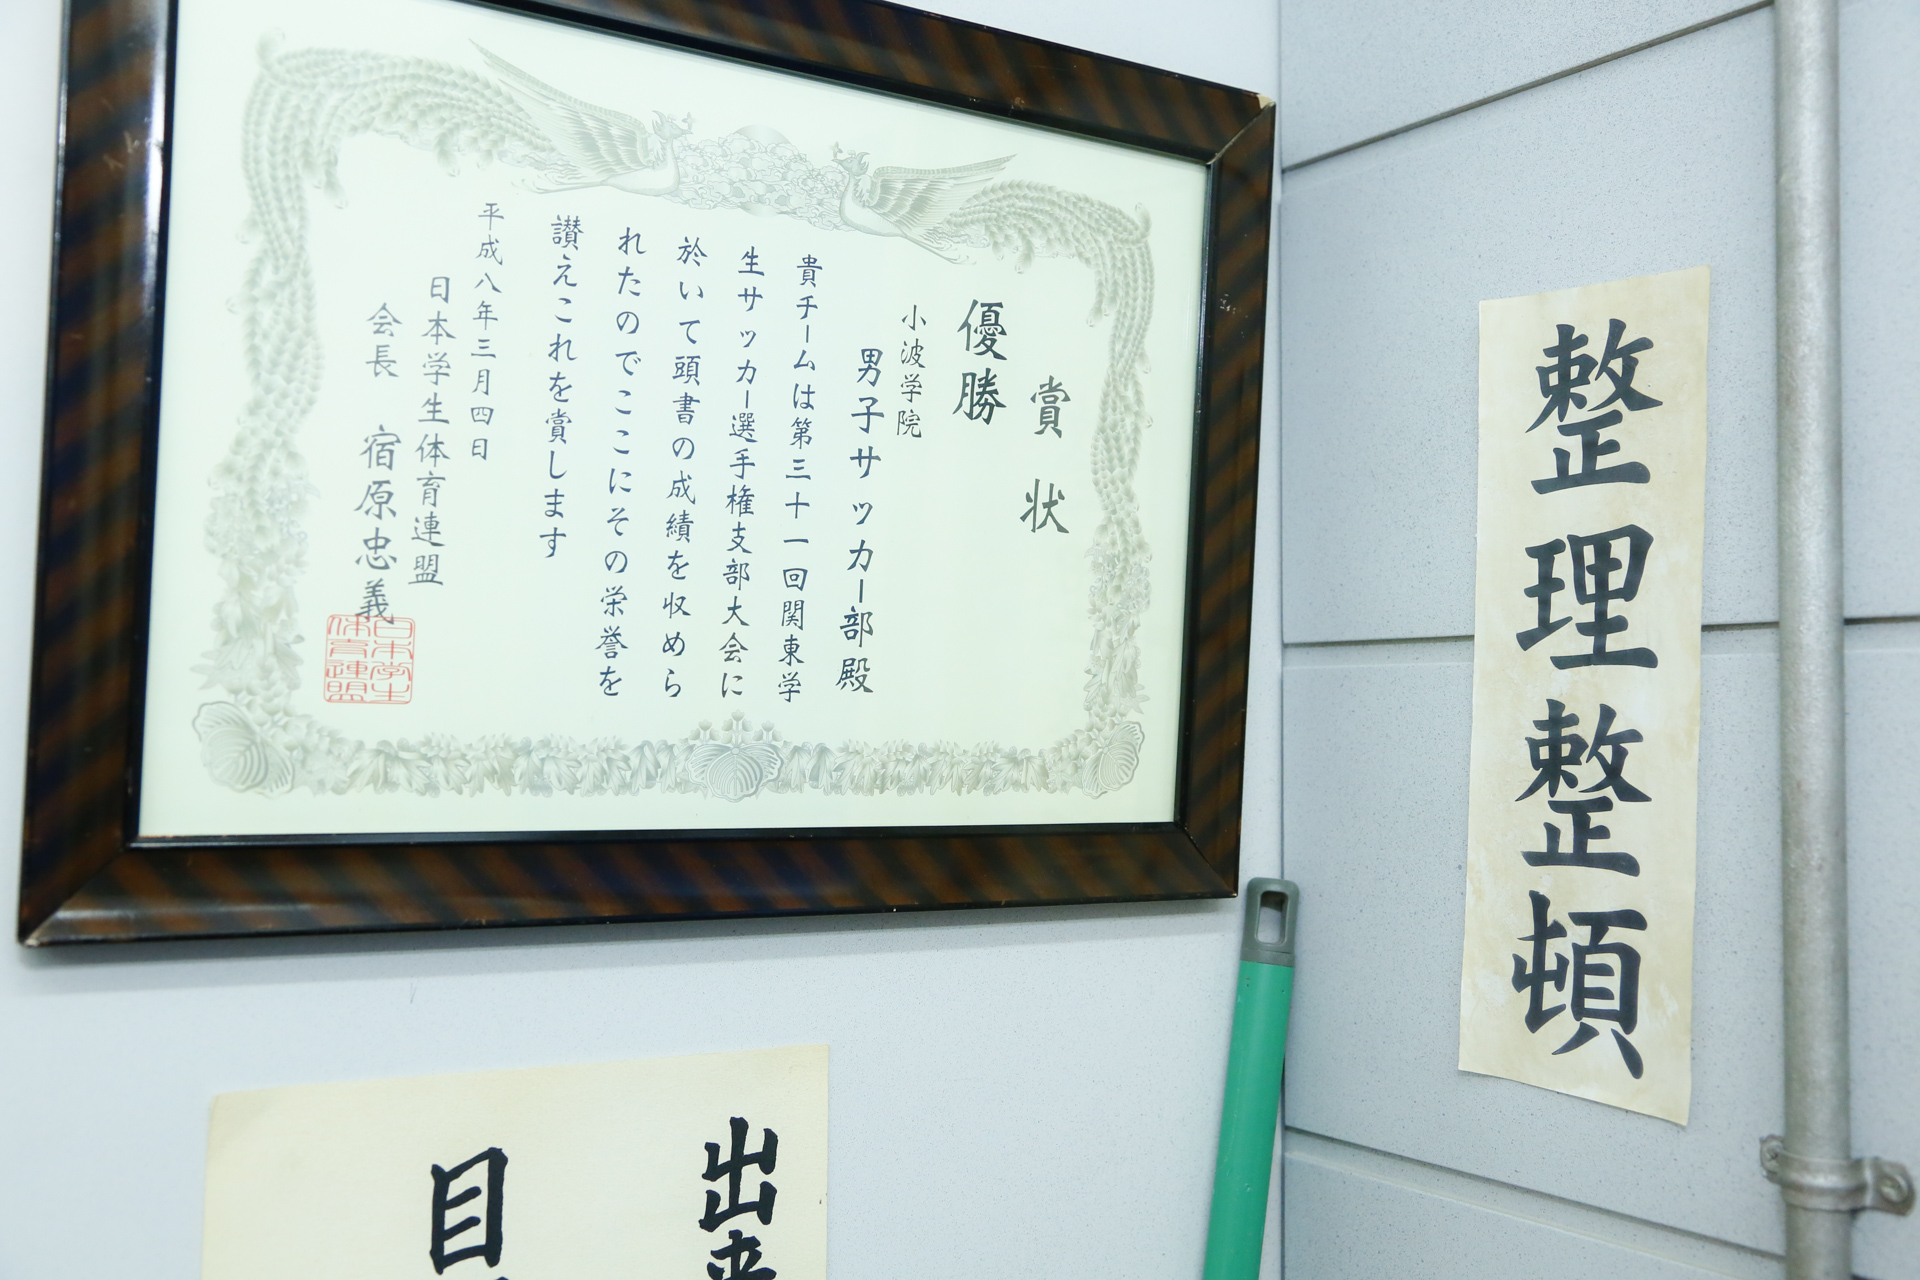 賞状
優勝
小波学院
男子サッカー部殿
貴チームは第三十一回関東学
生サッカー選手権支部大会に
於いて頭書の成績を収めら
れたのでここにその栄誉を
讃えこれを賞します
平成八年三月四日
日本学生体育連盟
会長 宿原忠義
日本学生
体育連盟
整理整頓
出来
目